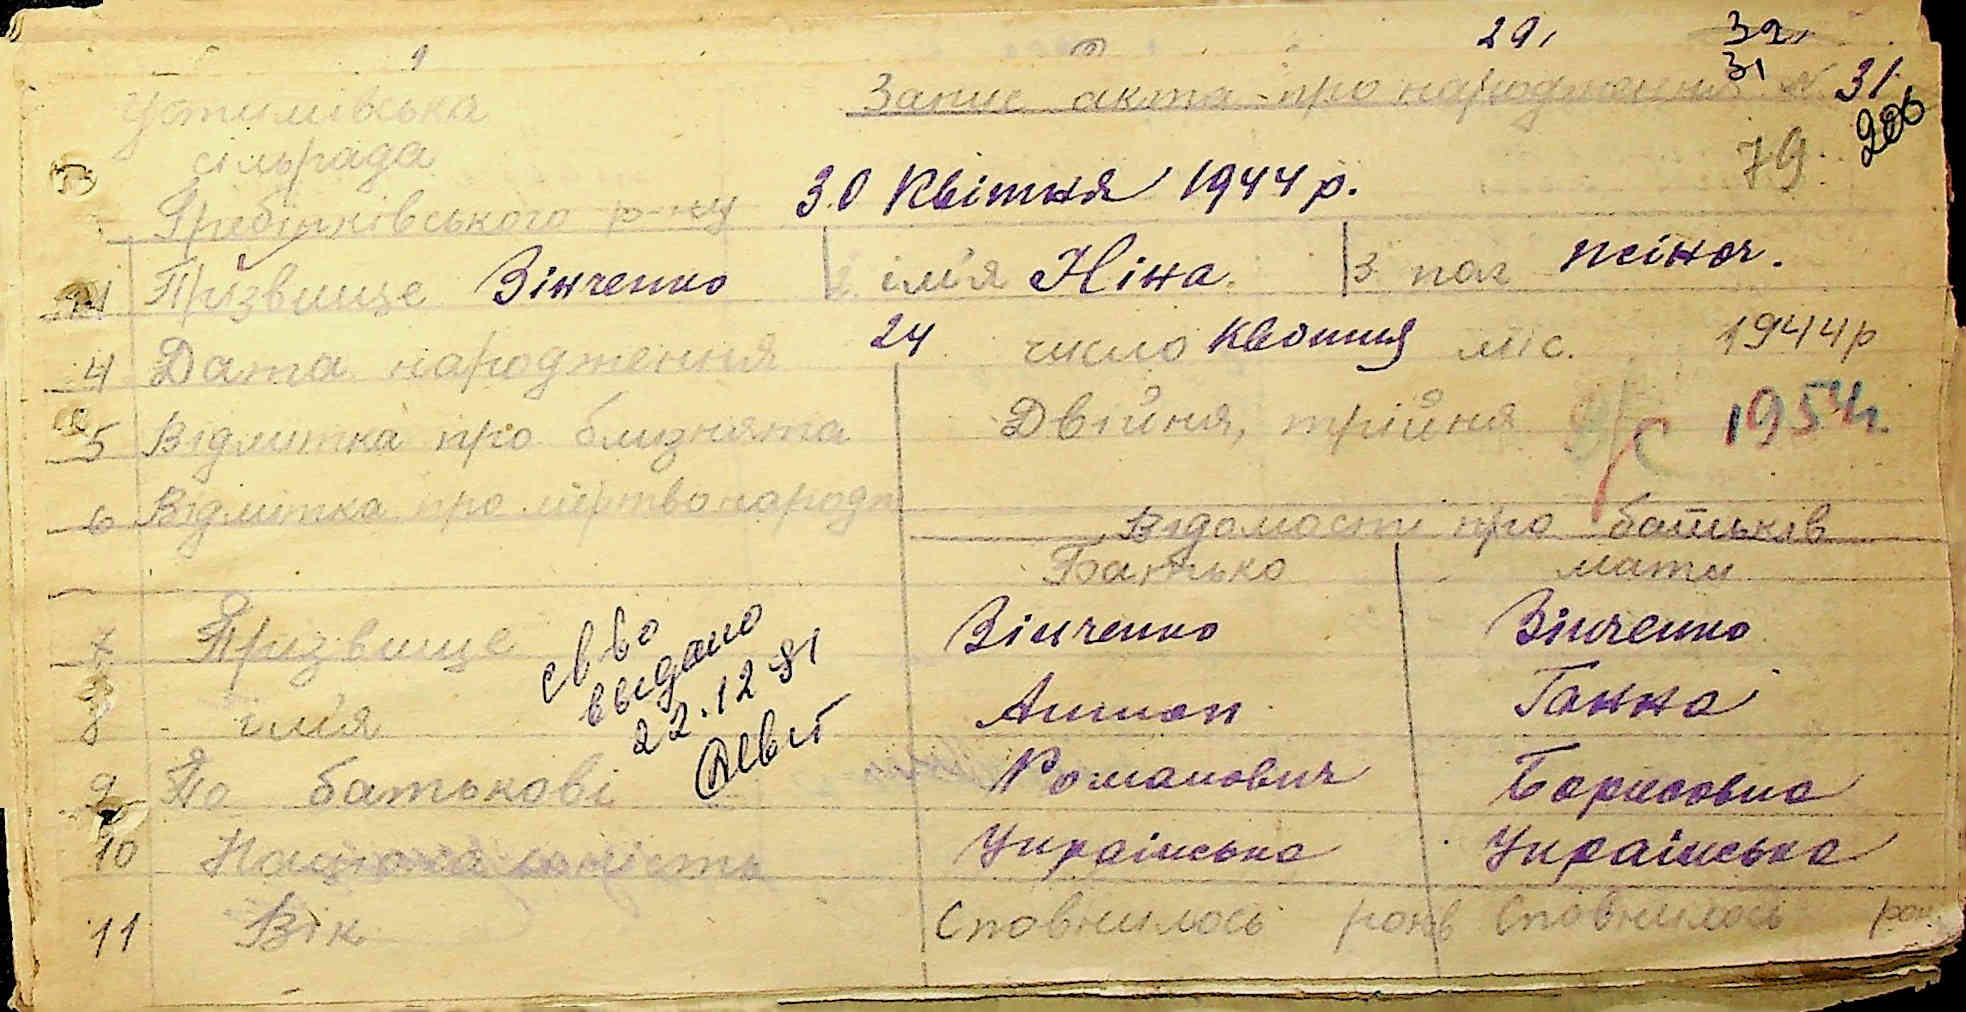 29, 32,
31
Устимівська Запис акта про народження N 31
сільрада 206
79
Гребінківського р-ну 30 Квітня 1944 р.
1 Прізвище Зінченко 2 ім'я Ніна. 3 пол жіноч.
4 Дата народження 24 число Квітня міс. 1944р
5 Відмитка про близнята Двійня, трійня 1954р.
6 Відмітка про мертвонародж
Відомости про батьків
Батько мати
7 Прізвище Зінченко Зінченко
8 ім'я Антон Ганна
9 По батькові Романович Борисовна
10 Національність Українська Українська
11 Вік Сповнилось років Сповнилось рок
св во
выдано
22.12 81